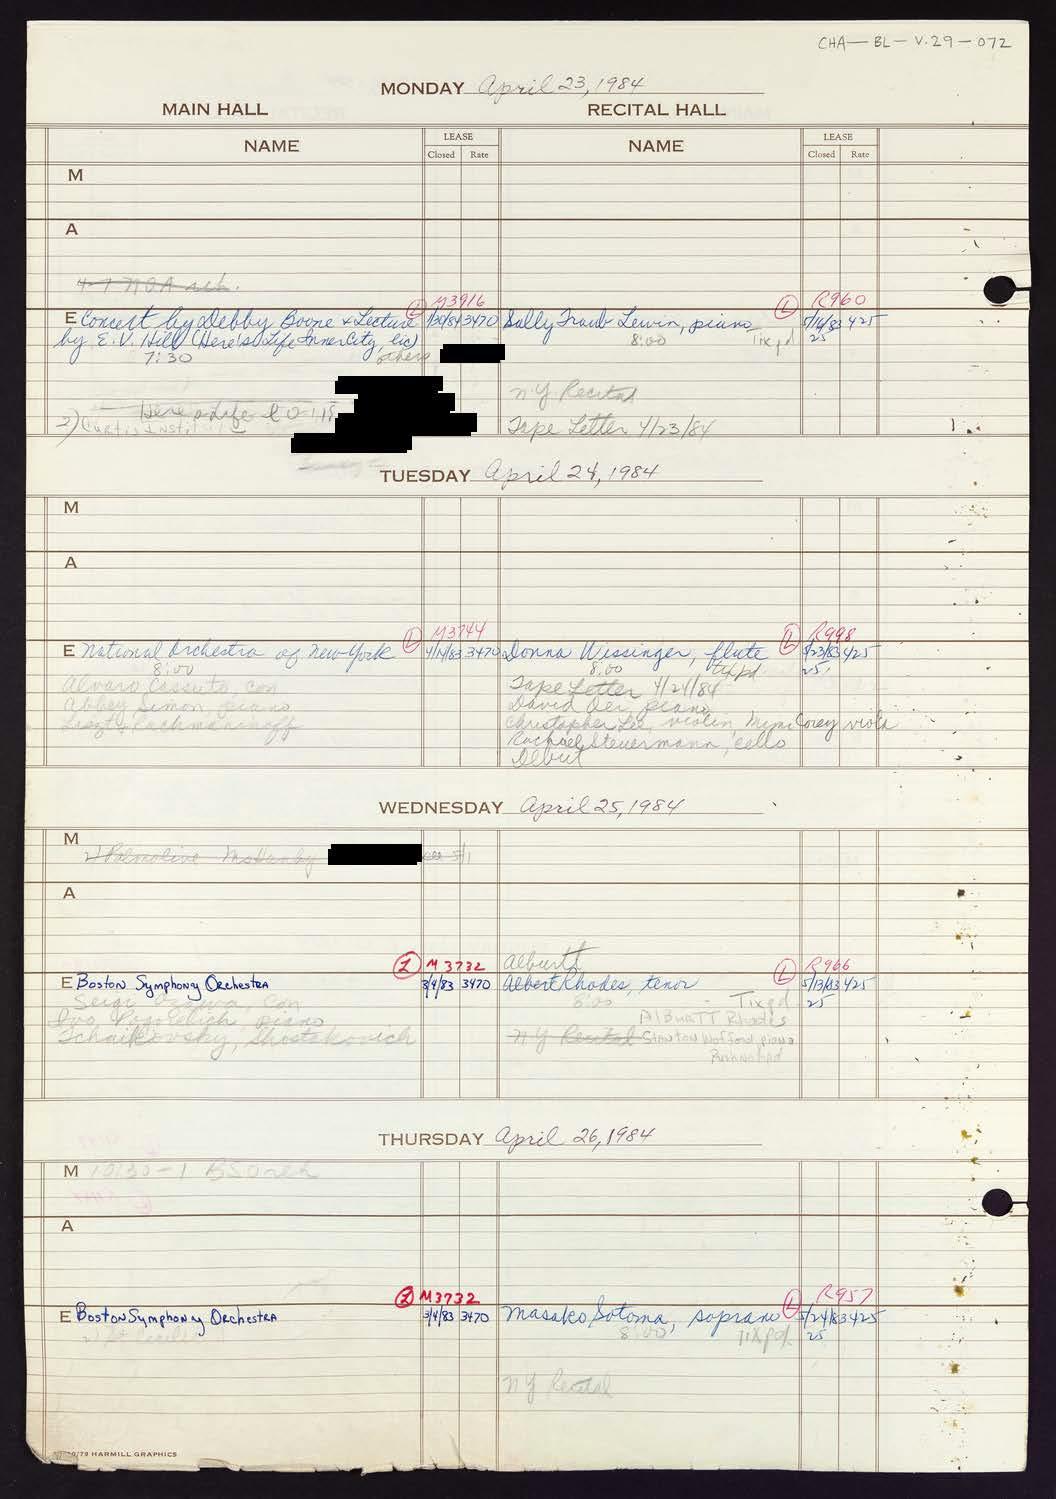 CHA-BL-V.29-072
MONDAY April 23, 1984
MAIN HALL RECITAL HALL
NAME LEASE Closed Rate NAME LEASE Closed Rate
M
A
4-7 NOA reh.
L M3916 L R960
E Concert by Debby Boone & Lecture 1/30/84 3470 Sally Traub Lewin, piano 5/16/83 425
by E. V. Hill (Here's Life Inner City, Inc) 8:00 Tix pd 25
7:30 others
NY Recital
Here's Life
2) Curtis Insti Tape Letter 4/23/84
TUESDAY April 24, 1984
M
A
L M3744 L R998
E National Orchestra of New York 4/14/83 3470 Donna Wissinger, flute 5/23/83 425
8:00 8:00 tix pd. 25.
Alvaro Cassuto, con Tape Letter 4/24/84
Abbey Simon, piano David Oei, piano
Liszt & Rachmaninoff Christopher Lee, violin, Mimi Corey viola
Rachael Steuermann, cello
Debut
WEDNESDAY April 25, 1984
M
2) Palmolive 5/1
A
Alburtt
L M 3732 L R966
E Boston Symphony Orchestra 3/4/83 3470 Albert Rhodes, tenor 5/13/83 425
Seiji Ozawa, con 8:00 - Tix pd 25
Ivo Pogorelich, piano AlBURTT Rhodes
Tchaikovsky, Shostakovich NY Recital Stanton Wofford, piano
THURSDAY April 26, 1984
M 10:30-1 BSO reh
A
L M3732 L R957
E Boston Symphony Orchestra 3/4/83 3470 Masako Sotoma, soprano 5/24/83 425
8:00 Tix pd. 25
NY Recital
10/79 HARMILL GRAPHICS